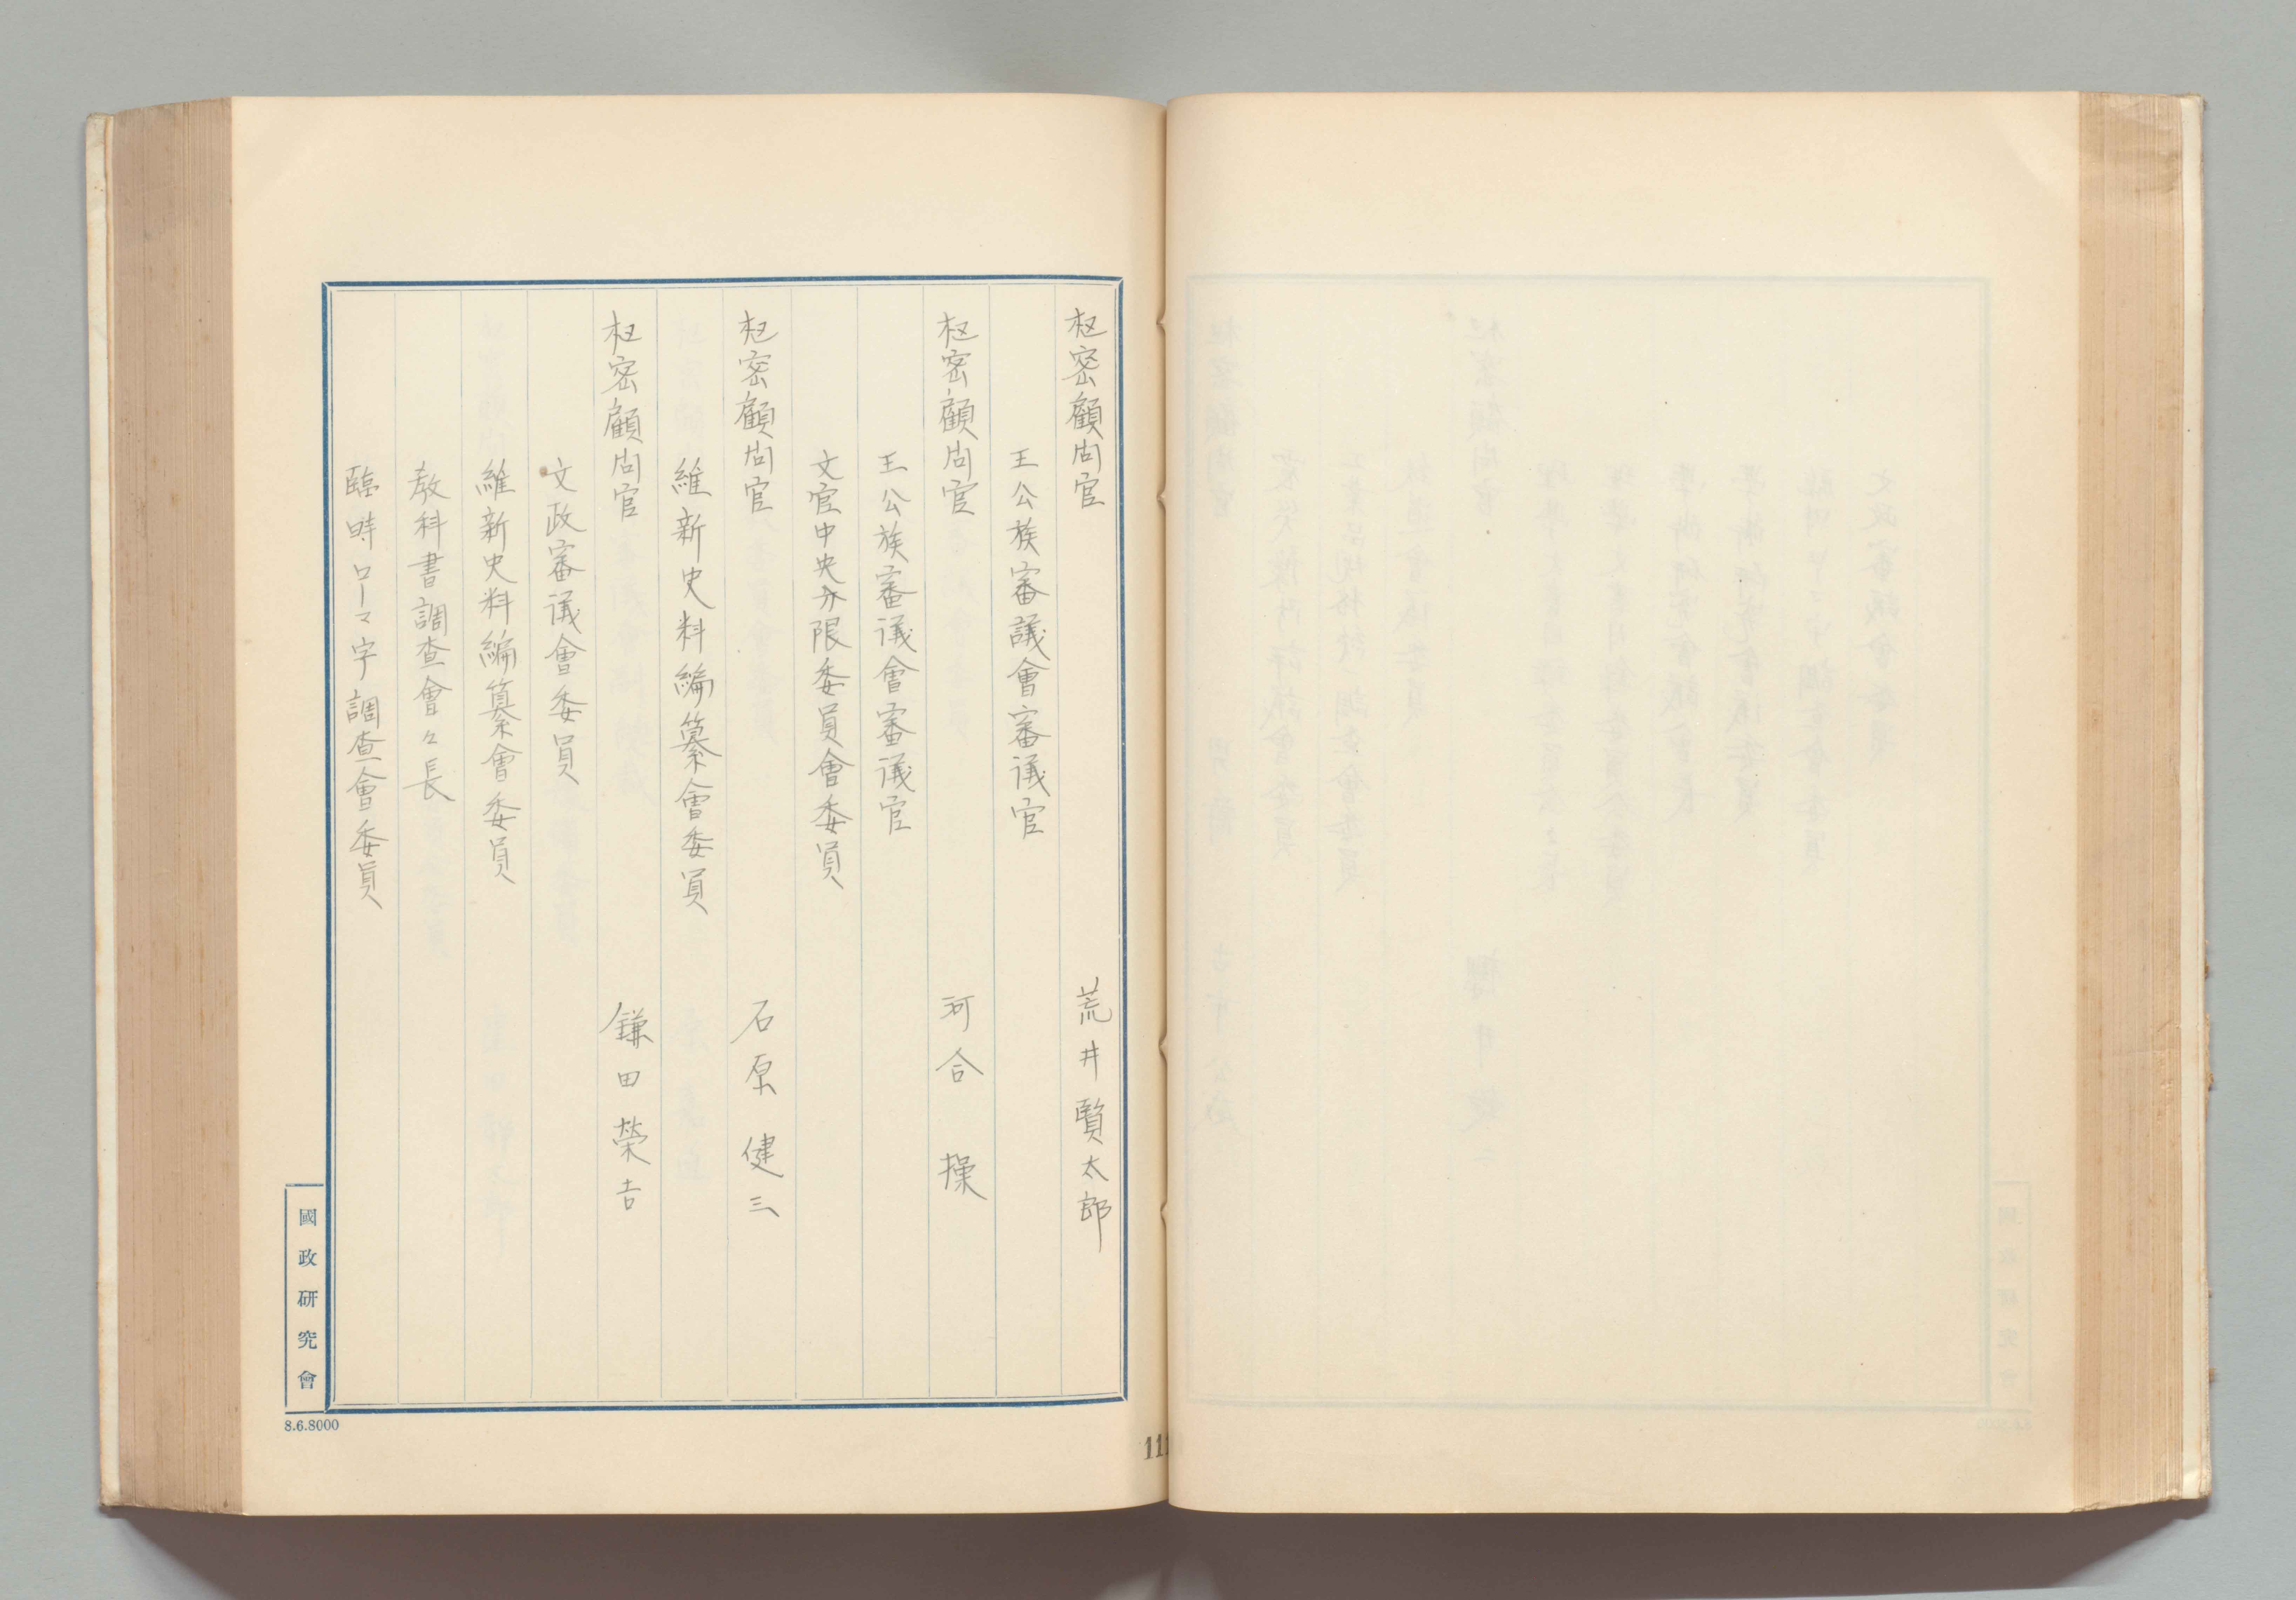 枢密顧問官 荒井賢太郎
王公族審議會審議官
枢密顧問官 河合操
王公族審議會審議官
文官中央分限委員會委員
枢密顧問官 石原健三
維新史料編纂會委員
枢密顧問官 鎌田榮吉
文政審議會委員
維新史料編纂會委員
教科書調査會々長
臨時ローマ字調査會委員
國政研究會
8.6.8000